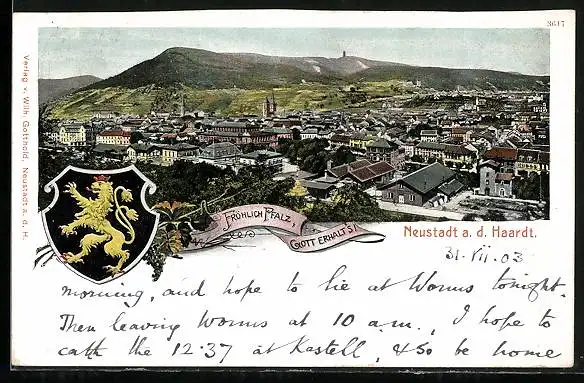 3617
Verlag v. Wilh. Gotthold, Neustadt a. d. H.
FRÖHLICH PFALZ,
GOTT ERHALT'S!
Neustadt a. d. Haardt.
31. VII. 03
morning, and hope to lie at Worms tonight.
Then leaving Worms at 10 a.m., I hope to
catch the 12.37 at Kastell, & so be home